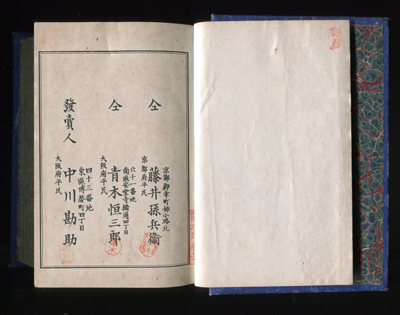 仝
京都府平民
藤井孫兵衞
京都御幸町姉小路北
仝
大阪府平民
青木恒三郎
南區安堂寺橋通四丁目
六十一番地
發賣人
大阪府平民
中川勘助
東區博勞町四丁目
四十三番地